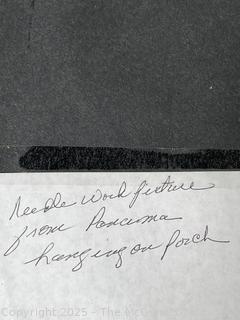 Needle work picture
from Panama
hanging on Porch
Copyright 2025 - The Mc